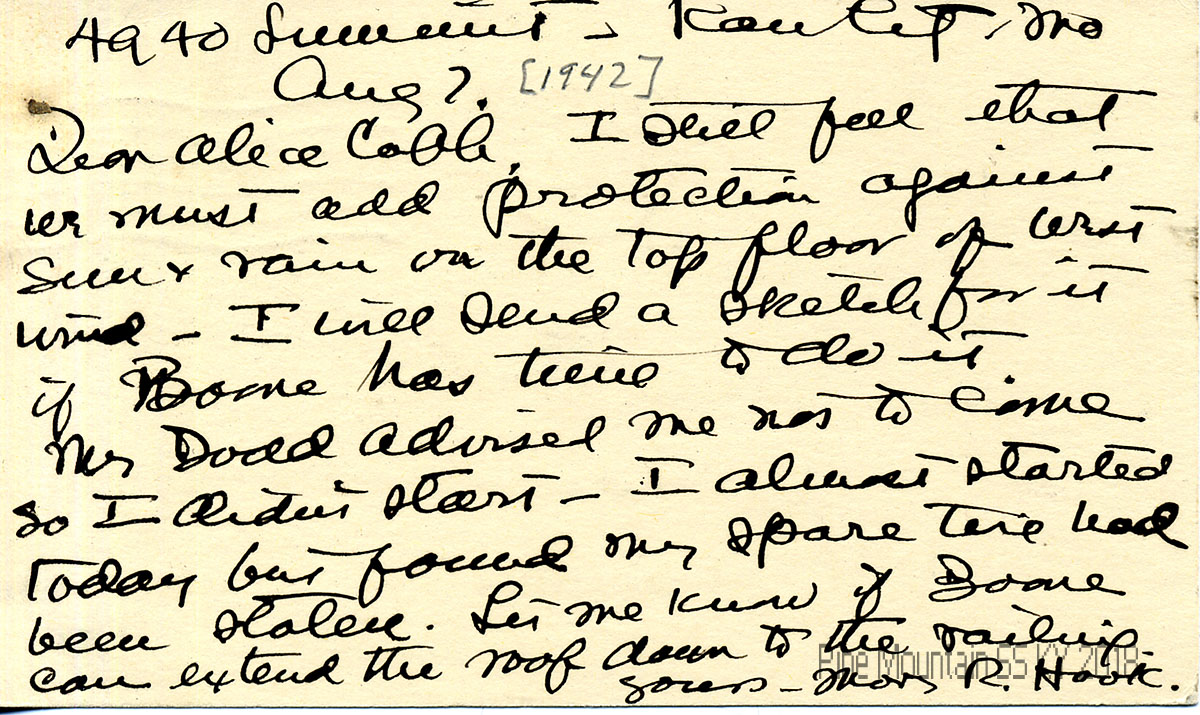 4940 Summit - Kan City, Mo
Aug 7. [1942]
Dear Alice Cobb, I still feel that
we must add protection against
sun & rain on the top floor of west
wind - I will send a sketch for it
if Boone has time to do it
Mr Dodd advised me not to come
so I didn't start - I almost started
today but found my spare tire had
been stolen. Let me know if Boone
can extend the roof down to the railing.
yours - Mary R. Hook.
Pine Mountain SS KY 2018